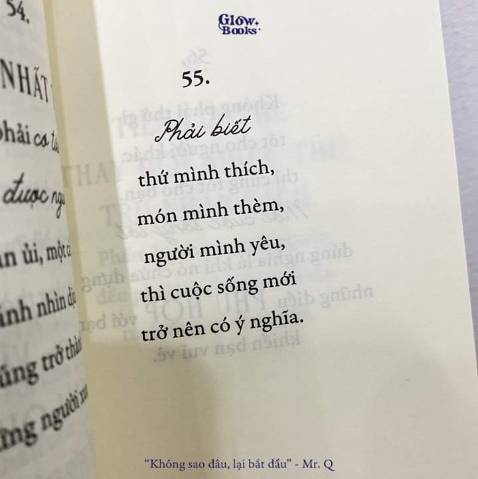 54.
NHẤT
phải
được
ủi, một
ánh nhìn
trở
người
Glow.
Books.
55.
Phải biết
thứ mình thích,
món mình thèm,
người mình yêu,
thì cuộc sống mới
trở nên có ý nghĩa.
"Không sao đâu, lại bắt đầu" - Mr. Q